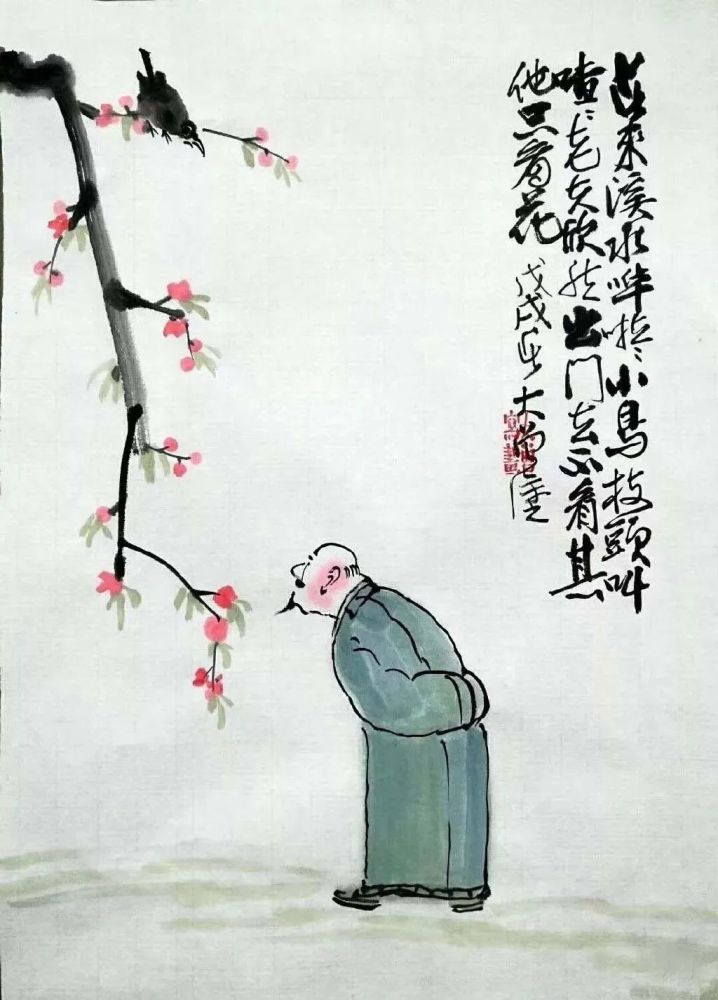 春来溪水哗啦々小鸟枝頭叫
喳々老夫欣然出门去不看其
他只看花 戊戌年 大